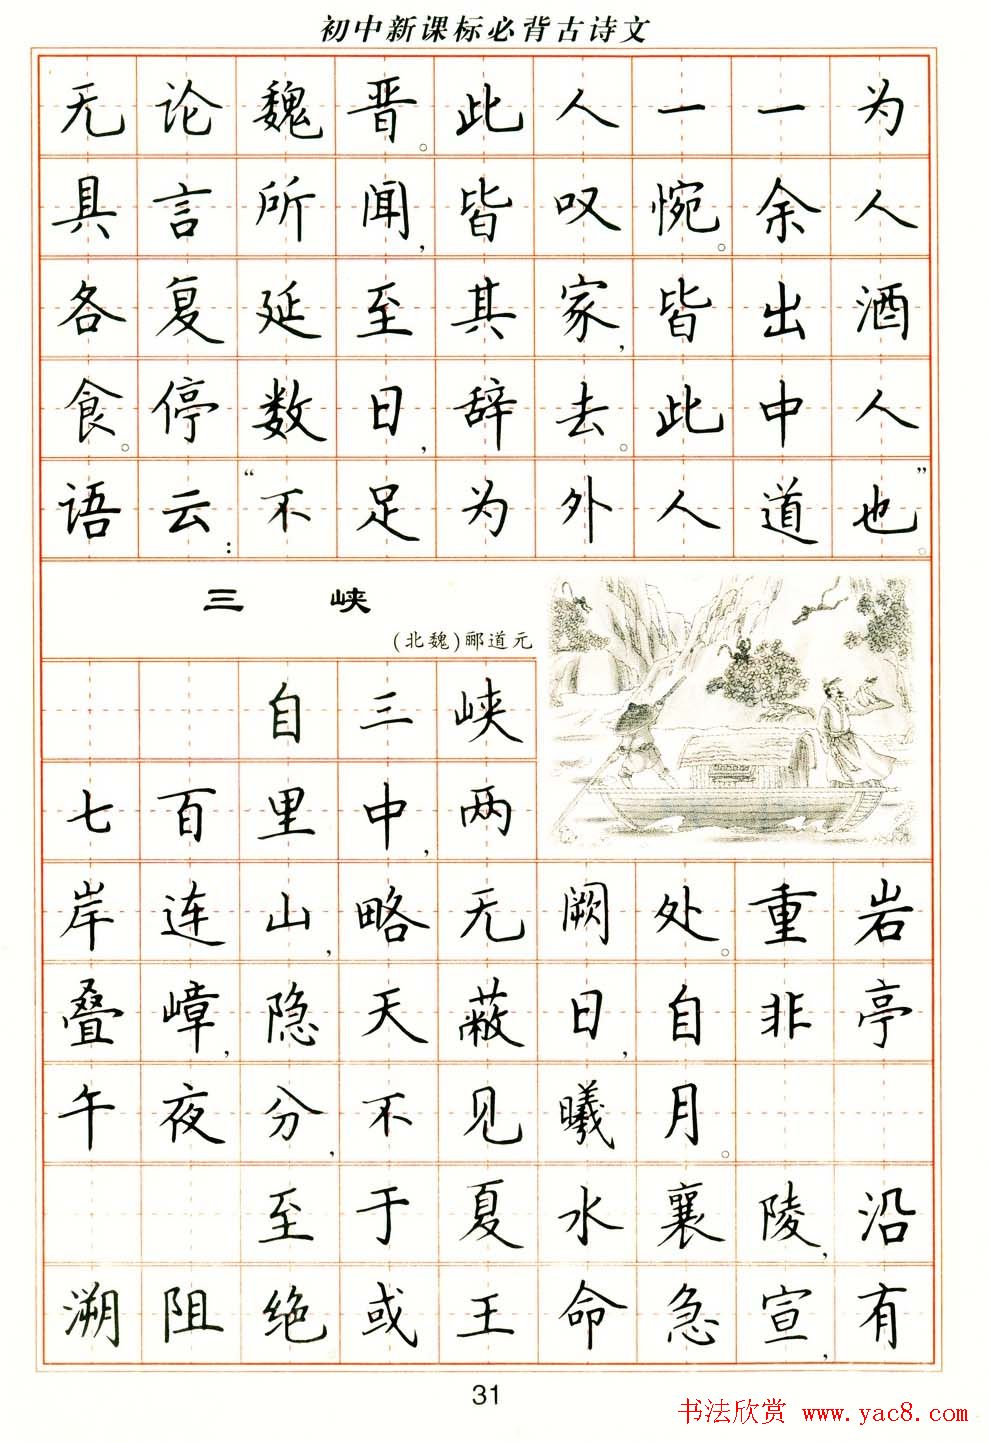 初中新课标必背古诗文
无论魏晋。此人一一为
具言所闻，皆叹惋。余人
各复延至其家，皆出酒
食。停数日，辞去。此中人
语云：“不足为外人道也”。
三峡
(北魏)郦道元
自三峡
七百里中，两
岸连山，略无阙处。重岩
叠嶂，隐天蔽日，自非亭
午夜分，不见曦月。
至于夏水襄陵，沿
溯阻绝或王命急宣，有
31
书法欣赏 www.yac8.com